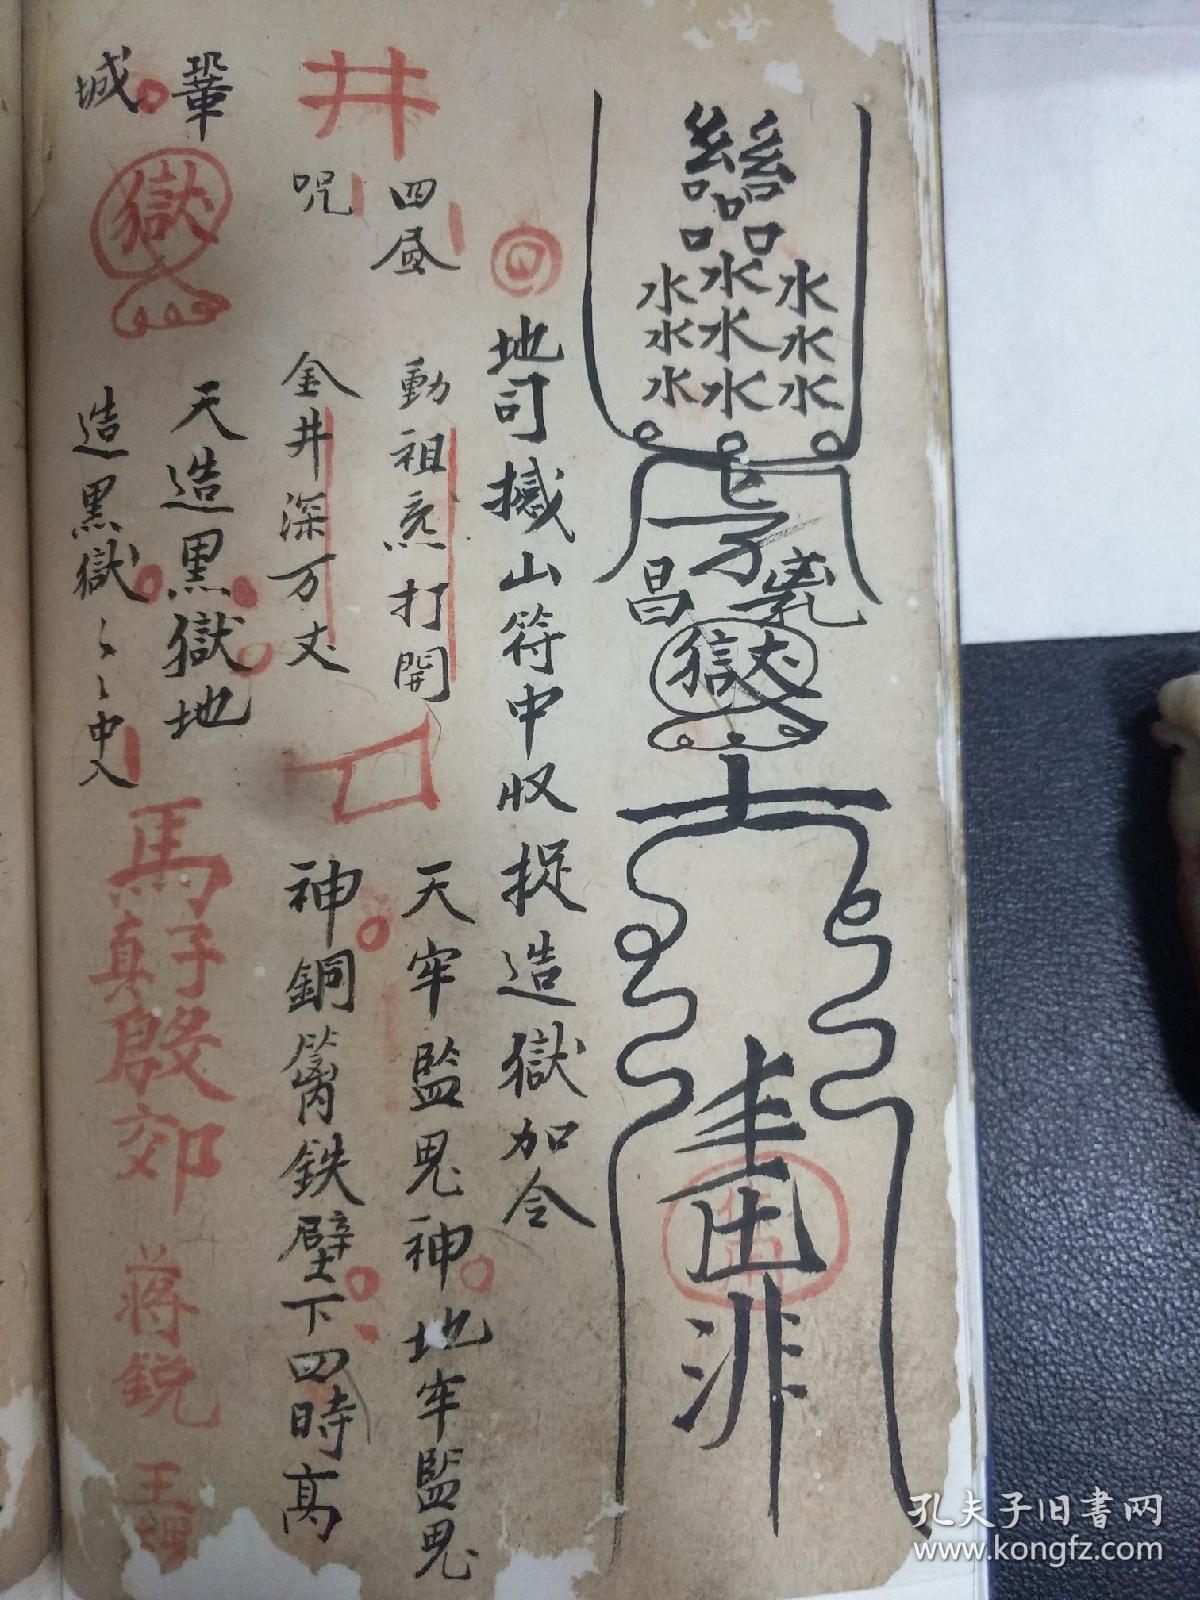 水水水
水水水
水水水
昌
獄
地司撼山符中收捉造獄加令
四
動祖炁打開
天牢監鬼神地牢監鬼
井
呪
金井深万丈
神銅篱鉄壁下四時高
鞏
天造黑獄地
城
獄
造黑獄〻〻中
馬子真殷郊
蔣銳
王
孔夫子旧書网
www.kongfz.com